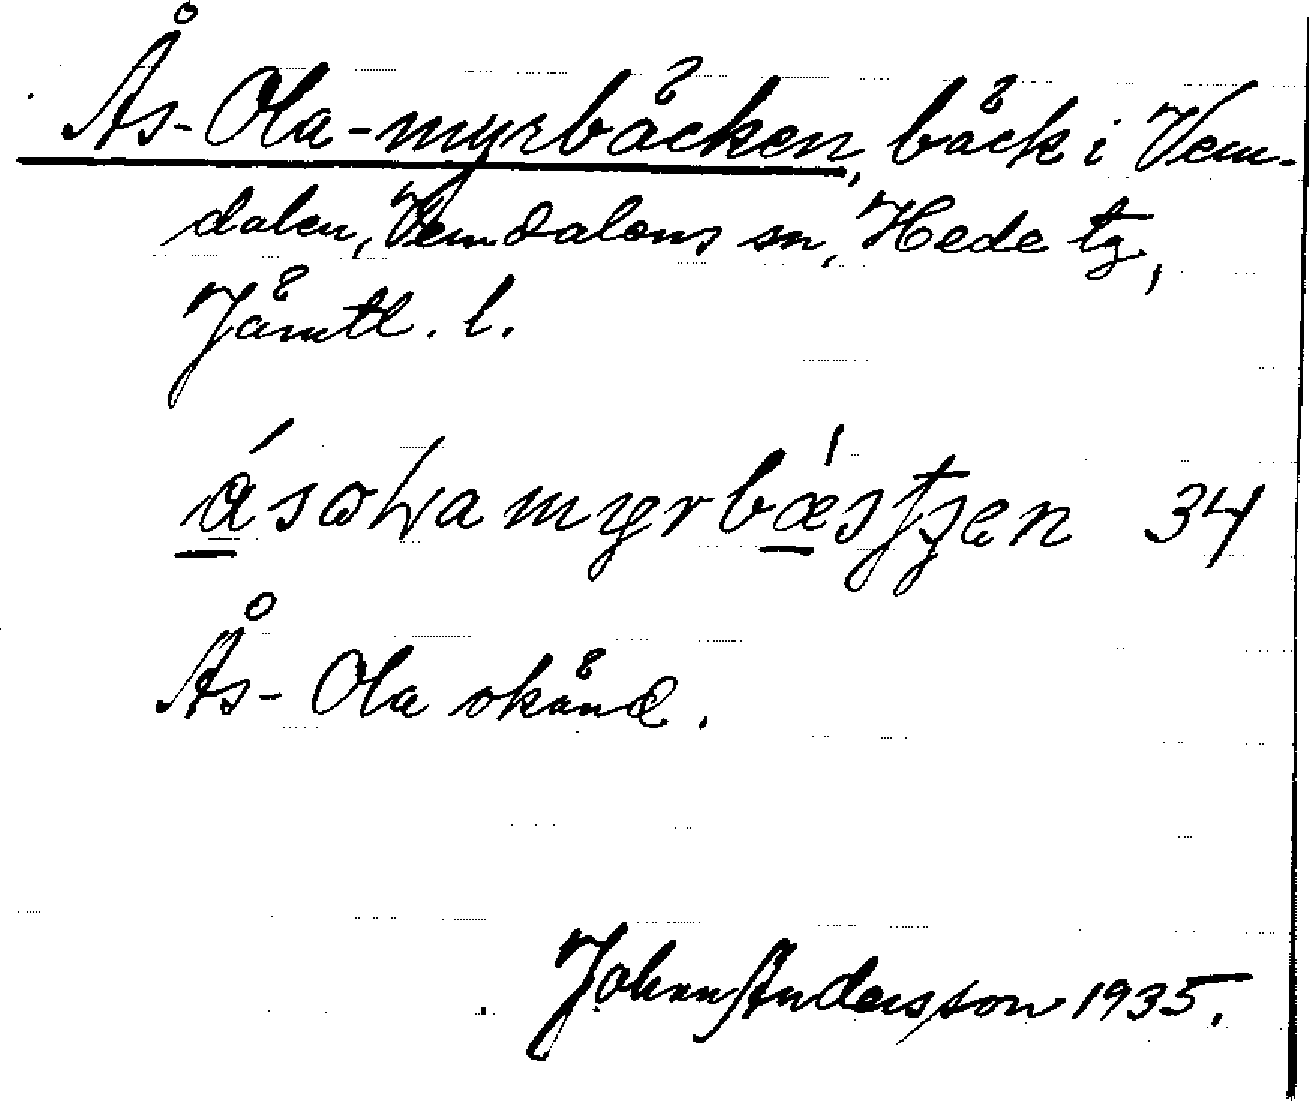 Ås-Ola-myrbäcken, bäck i Vem-
dalen, Vemdalens sn, Hede tg,
Jämtl. l.
34
Ås-Ola okänd.
Johan Andersson 1935.